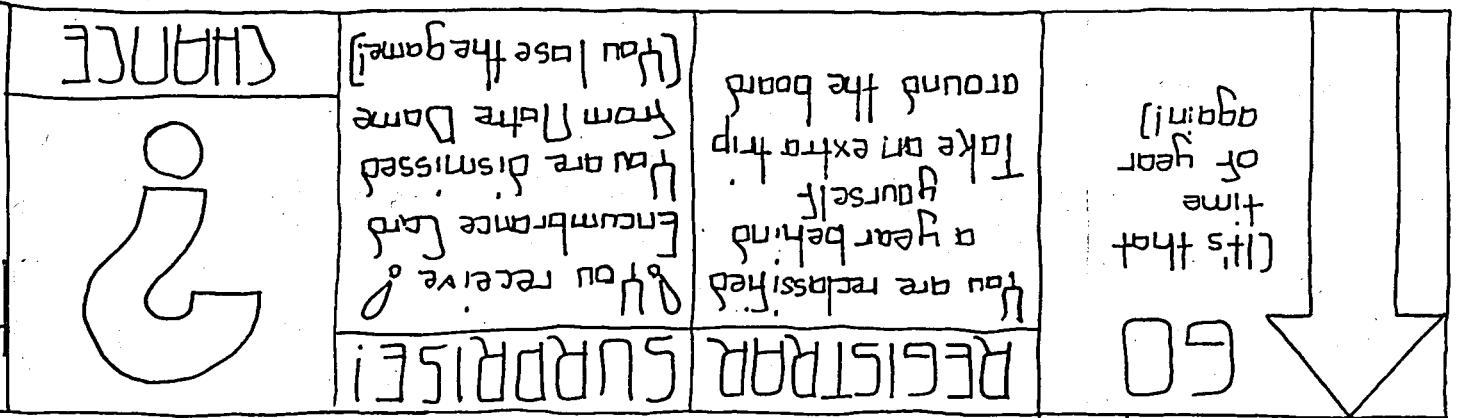 GO
(It's that
time
of year
again!)
REGISTRAR
You are reclassified
a year behind
yourself
Take an extra trip
around the board
SURPRISE!
! You receive !
Encumbrance Card
You are dismissed
from Notre Dame
(You lose the game!)
?
CHANCE